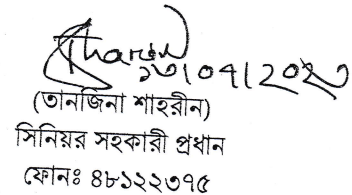 ১৩/০৭/২০২৩
(তানজিনা শাহরীন)
সিনিয়র সহকারী প্রধান
ফোনঃ ৪৮১২২৩৭৫